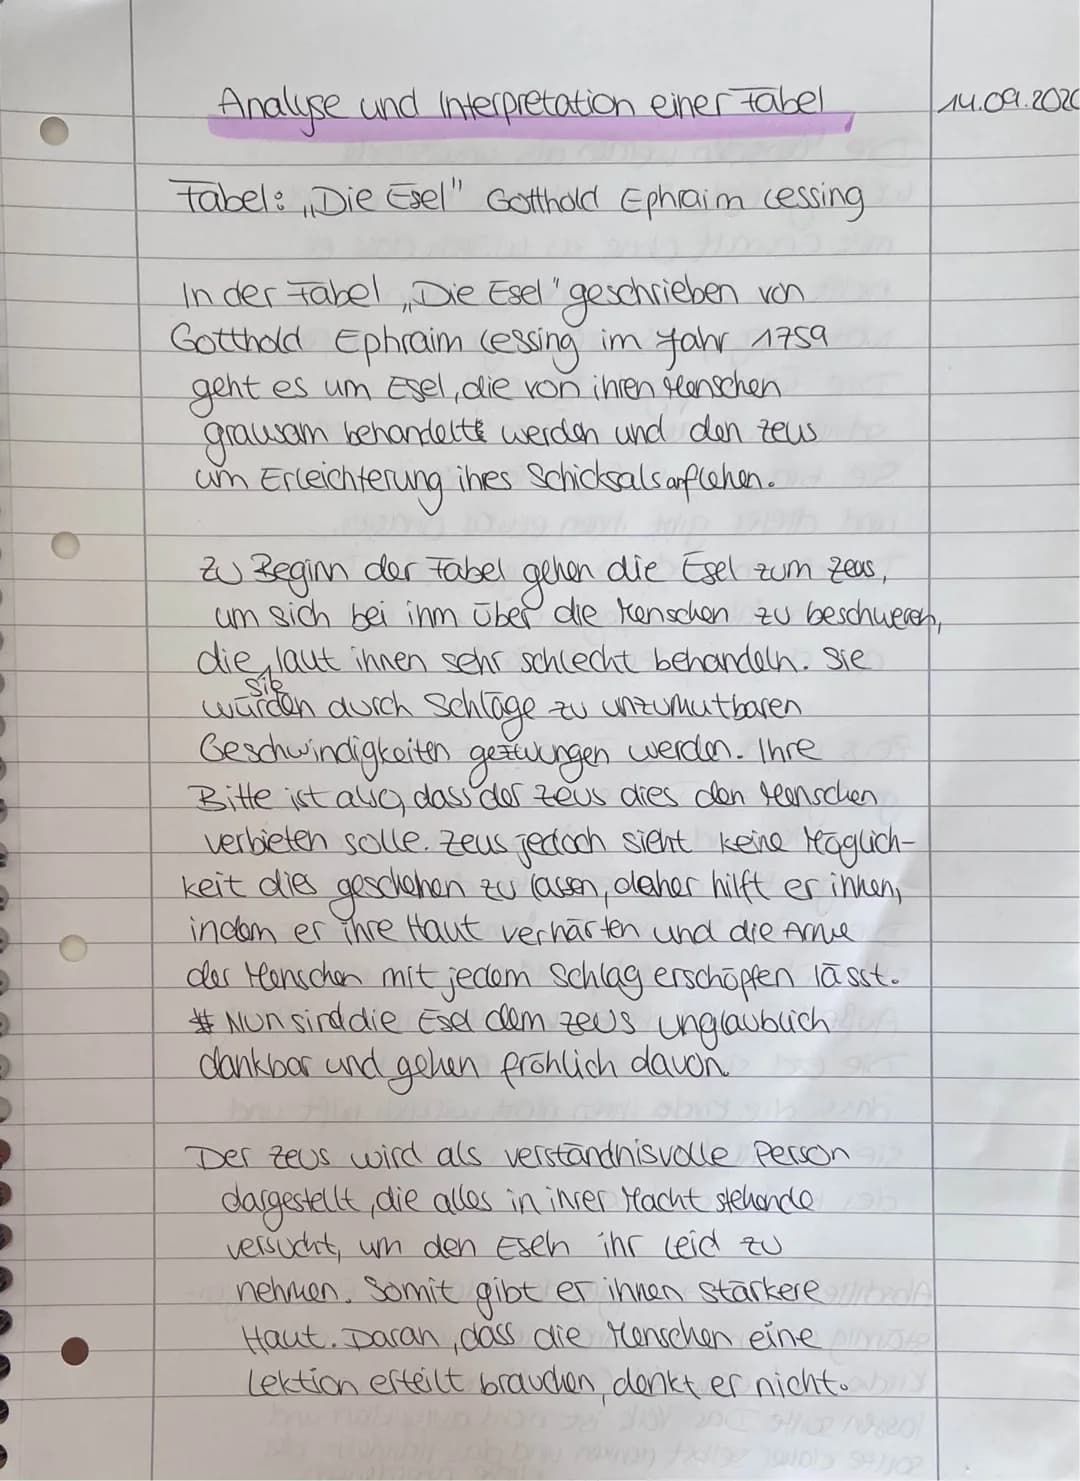 Analyse und Interpretation einer Fabel
14.09.202
Fabel: „Die Esel" Gotthold Ephraim Lessing
In der Fabel „Die Esel" geschrieben von
Gotthold Ephraim Lessing im Jahr 1759
geht es um Esel, die von ihren Menschen
grausam behandelt werden und den Zeus
um Erleichterung ihres Schicksals anflehen.
Zu Beginn der Fabel gehen die Esel zum Zeus,
um sich bei ihm über die Menschen zu beschweren,
die, laut ihnen sehr schlecht behandeln. Sie
sie
würden durch Schläge zu unzumutbaren
Geschwindigkeiten gezwungen werden. Ihre
Bitte ist also, dass der Zeus dies den Menschen
verbieten solle. Zeus jedoch sieht keine Möglich-
keit dies geschehen zu lassen, daher hilft er ihnen,
indem er ihre Haut verhärten und die Arme
der Menschen mit jedem Schlag erschöpfen lässt.
Nun sind die Esel dem Zeus unglaublich
dankbar und gehen fröhlich davon.
Der Zeus wird als verständnisvolle Person
dargestellt, die alles in ihrer Macht stehende
versucht, um den Eseln ihr Leid zu
nehmen. Somit gibt er ihnen stärkere
Haut. Daran, dass die Menschen eine
Lektion erteilt brauchen, denkt er nicht.